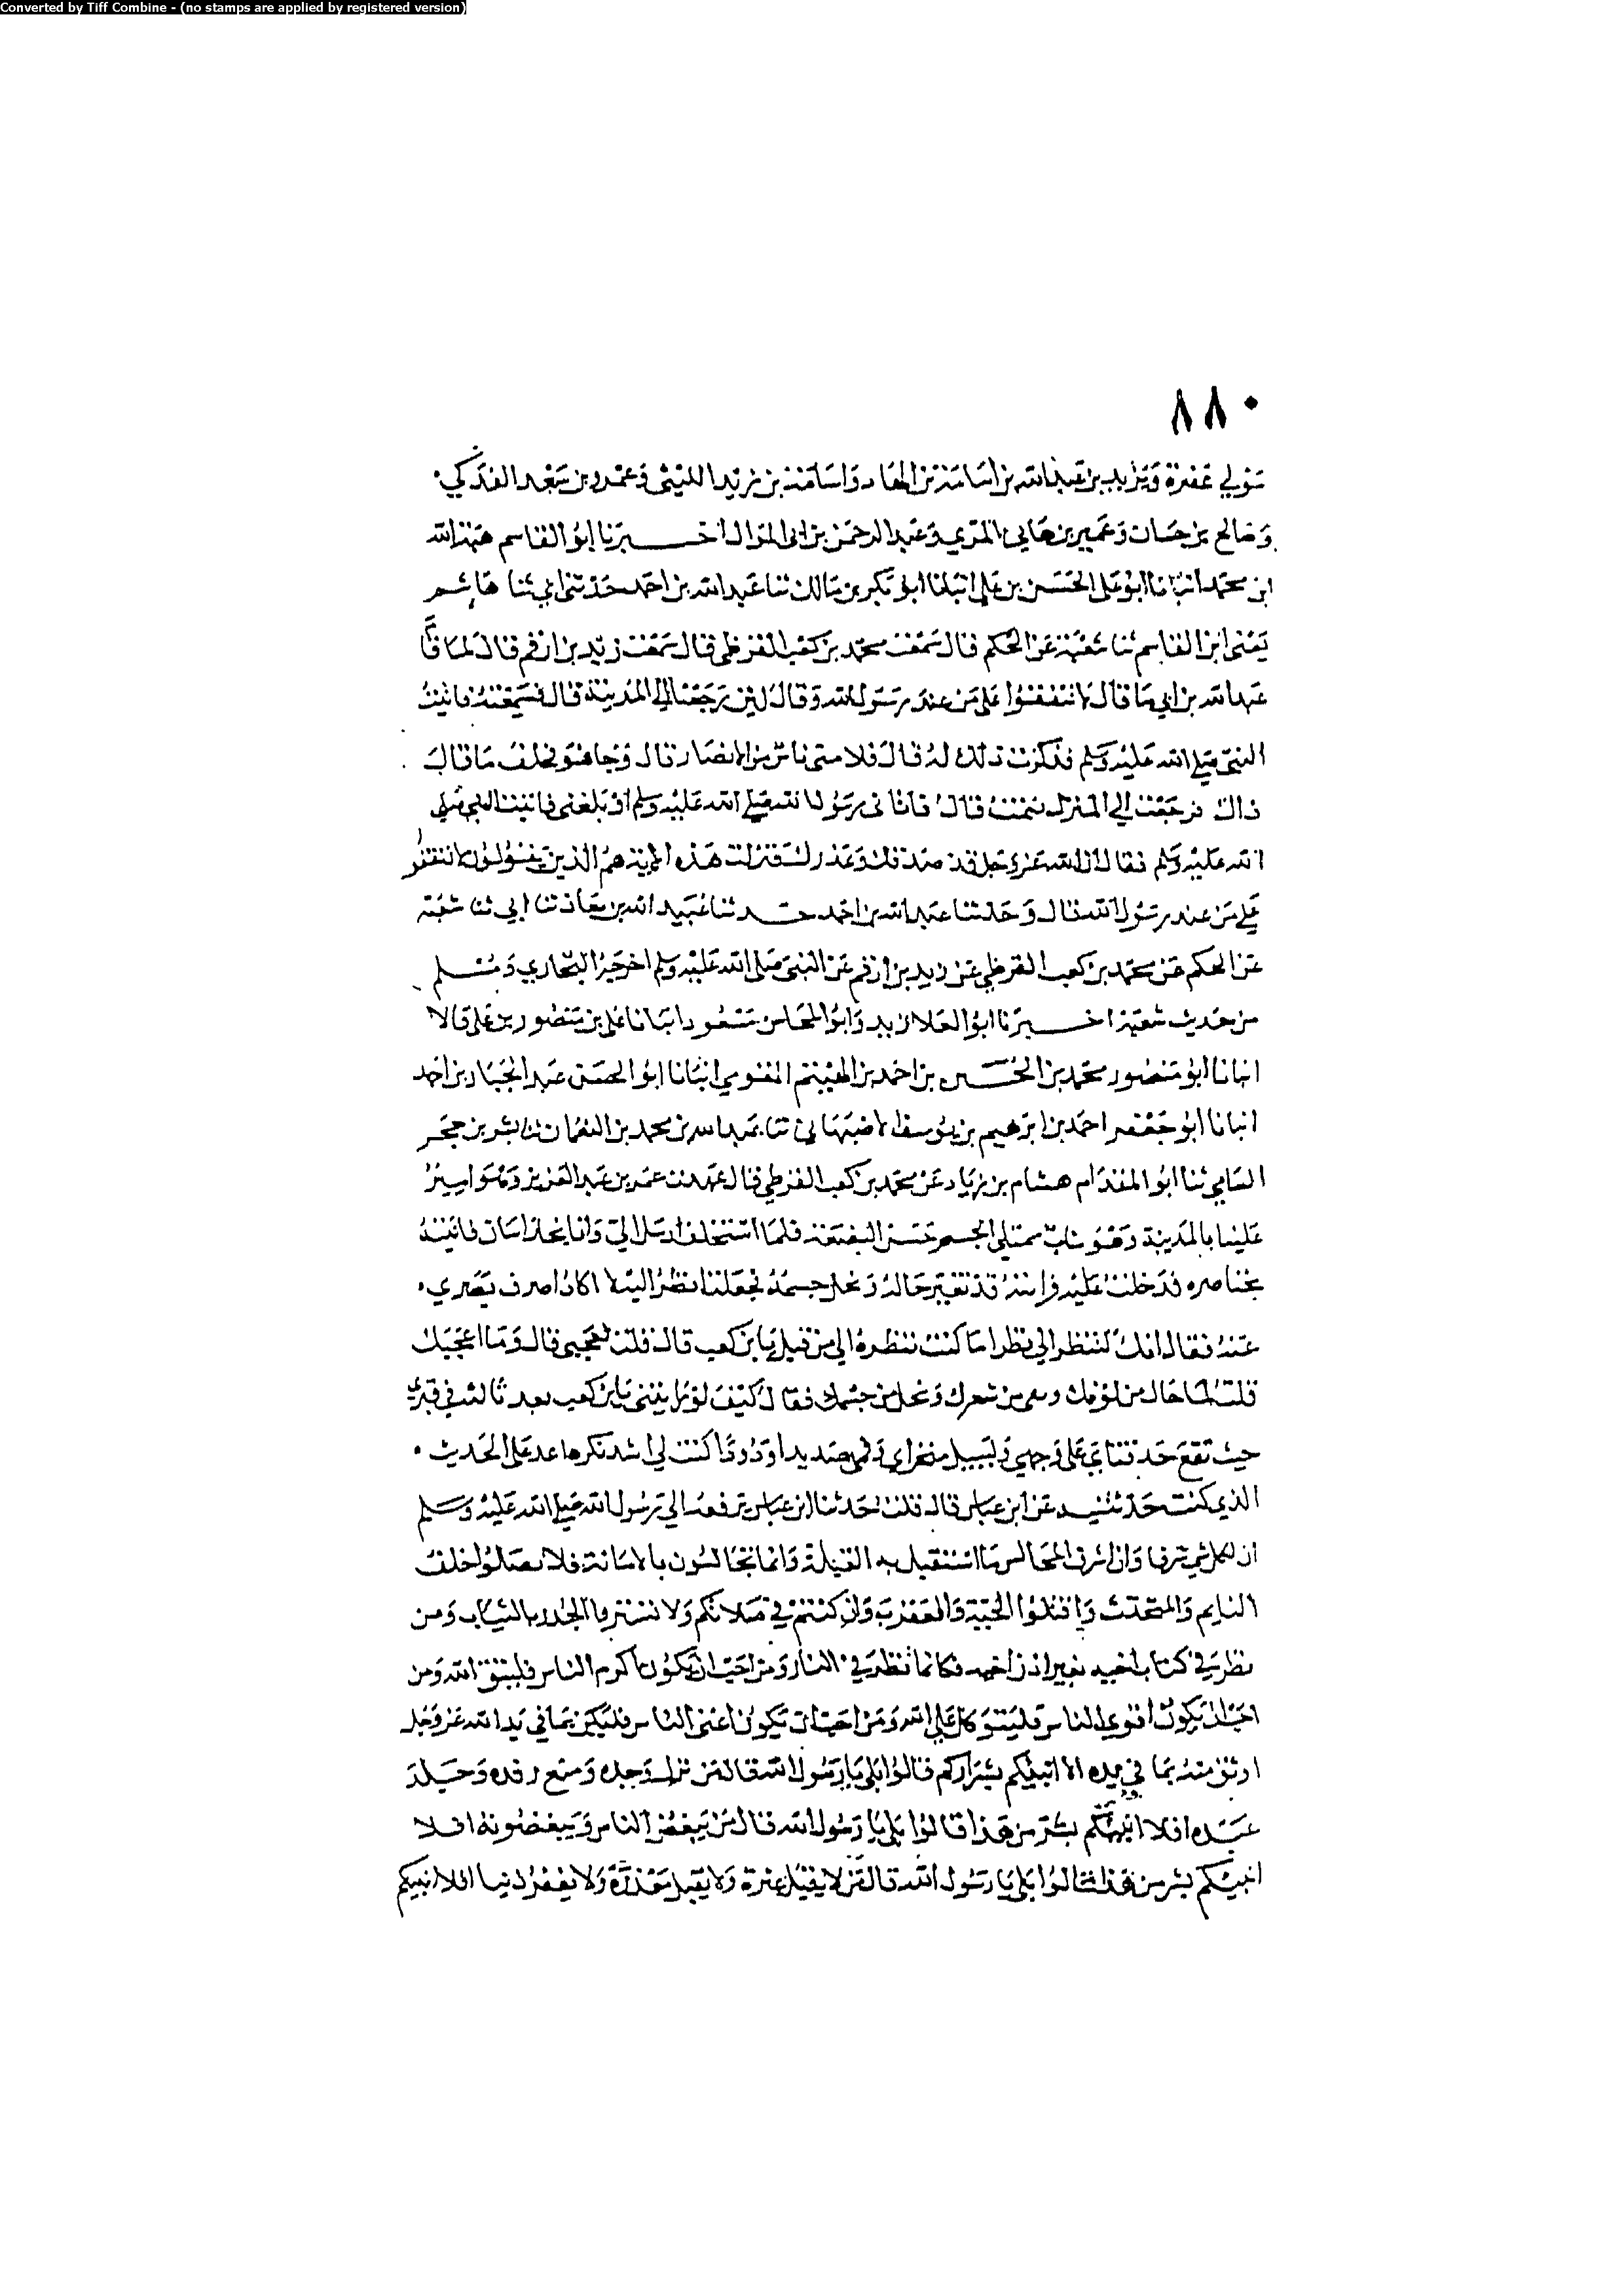 Converted by Tiff Combine - (no stamps are applied by registered version)
٨٨٠
مولى غفرة ويزيد بن عبد الله بن أسامة بن الهاد وأسامة بن زيد الليثي وعمرو بن سعد الفدكي
وصالح بن حسان وعمير بن هاني المري وعبد الرحمن بن أبي الموال أخبرنا أبو القاسم هبة الله
ابن محمد أنبأنا أبو علي الحسن بن علي أنبأنا أبو بكر بن مالك ثنا عبد الله بن احمد حدثني أبي ثنا هاشم
يعني ابن القاسم ثنا شعبة عن الحكم قال سمعت محمد بن كعب القرظي قال سمعت زيد بن ارقم قال لما قال
عبد الله بن ابي ما قال لا تنفقوا على من عند رسول الله وقال لئن رجعنا الى المدينة قال فسمعته فاتيت
النبي صلى الله عليه وسلم فذكرت ذلك له قال فلامني ناس من الانصار قال وجا هو فحلف ما قال
ذاك فرجعت الى المنزل فنمت قال فاتاني رسول الله صلى الله عليه وسلم او بلغني فاتيت النبي صلى
الله عليه وسلم فقال ان الله عز وجل قد صدقك وعذرك فنزلت هذه الاية هم الذين يقولون لا تنفقوا
على من عند رسول الله قال وحدثنا عبد الله بن احمد حدثنا عبيد الله بن معاذ ثنا ابي ثنا شعبة
عن الحكم عن محمد بن كعب القرظي عن زيد بن ارقم عن النبي صلى الله عليه وسلم اخرجه البخاري ومسلم
من حديث شعبة اخبرنا ابو العلا زيد وابو المحاسن مسعود ابنانا علي بن منصور بن علي قالا
انبانا ابو منصور محمد بن الحسين بن احمد بن الهيثم المقومي انبانا ابو الحسن عبد الجبار بن احمد
انبانا ابو جعفر احمد بن ابرهيم بن يوسف الاصبهاني ثنا عبد الله بن محمد بن النعمان ثنا بشر بن حجر
السامي ثنا ابو المقدام هشام بن زياد عن محمد بن كعب القرظي قال عهدت عمر بن عبد العزيز وهو امير
علينا بالمدينة وهو شاب ممتلى الجسم حسن البضعة فلما استخلف ارسل الي وانا بخراسان فاتيته
بخناصره فدخلت عليه فرايته قد تغير حاله ونحل جسمه فجعلت انظر اليه لا اكاد اصرف بصري
عنه فقال انك لتنظر الي نظرا ما كنت تنظره الي من قبل يا بن كعب قال قلت لعجبي قال وما اعجبك
قلت لما حال من لونك ونحل من جسمك فقال كيف لو رايتني يا بن كعب بعد ثالثه في قبري
حيث تقع حدقتاي على وجهي ويسيل منخراي وفمي صديدا ودودا كنت لي اشد نكره اعد علي الحديث
الذي كنت حدثتنيه عن ابن عباس قال قلت حدثنا ابن عباس يرفعه الى رسول الله صلى الله عليه وسلم
ان لكل شي شرفا وان اشرف المجالس ما استقبل به القبلة وانما تجالسون بالامانة فلا تصلوا خلف
النايم والمتحدث واقتلوا الحية والعقرب وان كنتم في صلاتكم ولا تستروا الجدر بالثياب ومن
نظر في كتاب اخيه بغير اذن اخيه فكانما نظر في النار ومن احب ان يكون اكرم الناس فليتق الله ومن
احب ان يكون اقوى الناس فليتوكل على الله ومن احب ان يكون اغنى الناس فليكن بما في يد الله عز وجل
اوثق منه بما في يده الا انبئكم بشراركم قالوا بلى يا رسول الله قال من نزل وحده ومنع رفده وجلد
عبده افلا انبئكم بشر من هذا قالوا بلى يا رسول الله قال من يبغض الناس ويبغضونه افلا
انبئكم بشر من هذا قالوا بلى يا رسول الله قال من لا يقيل عثرة ولا يقبل معذرة ولا يغفر ذنبا افلا انبيكم